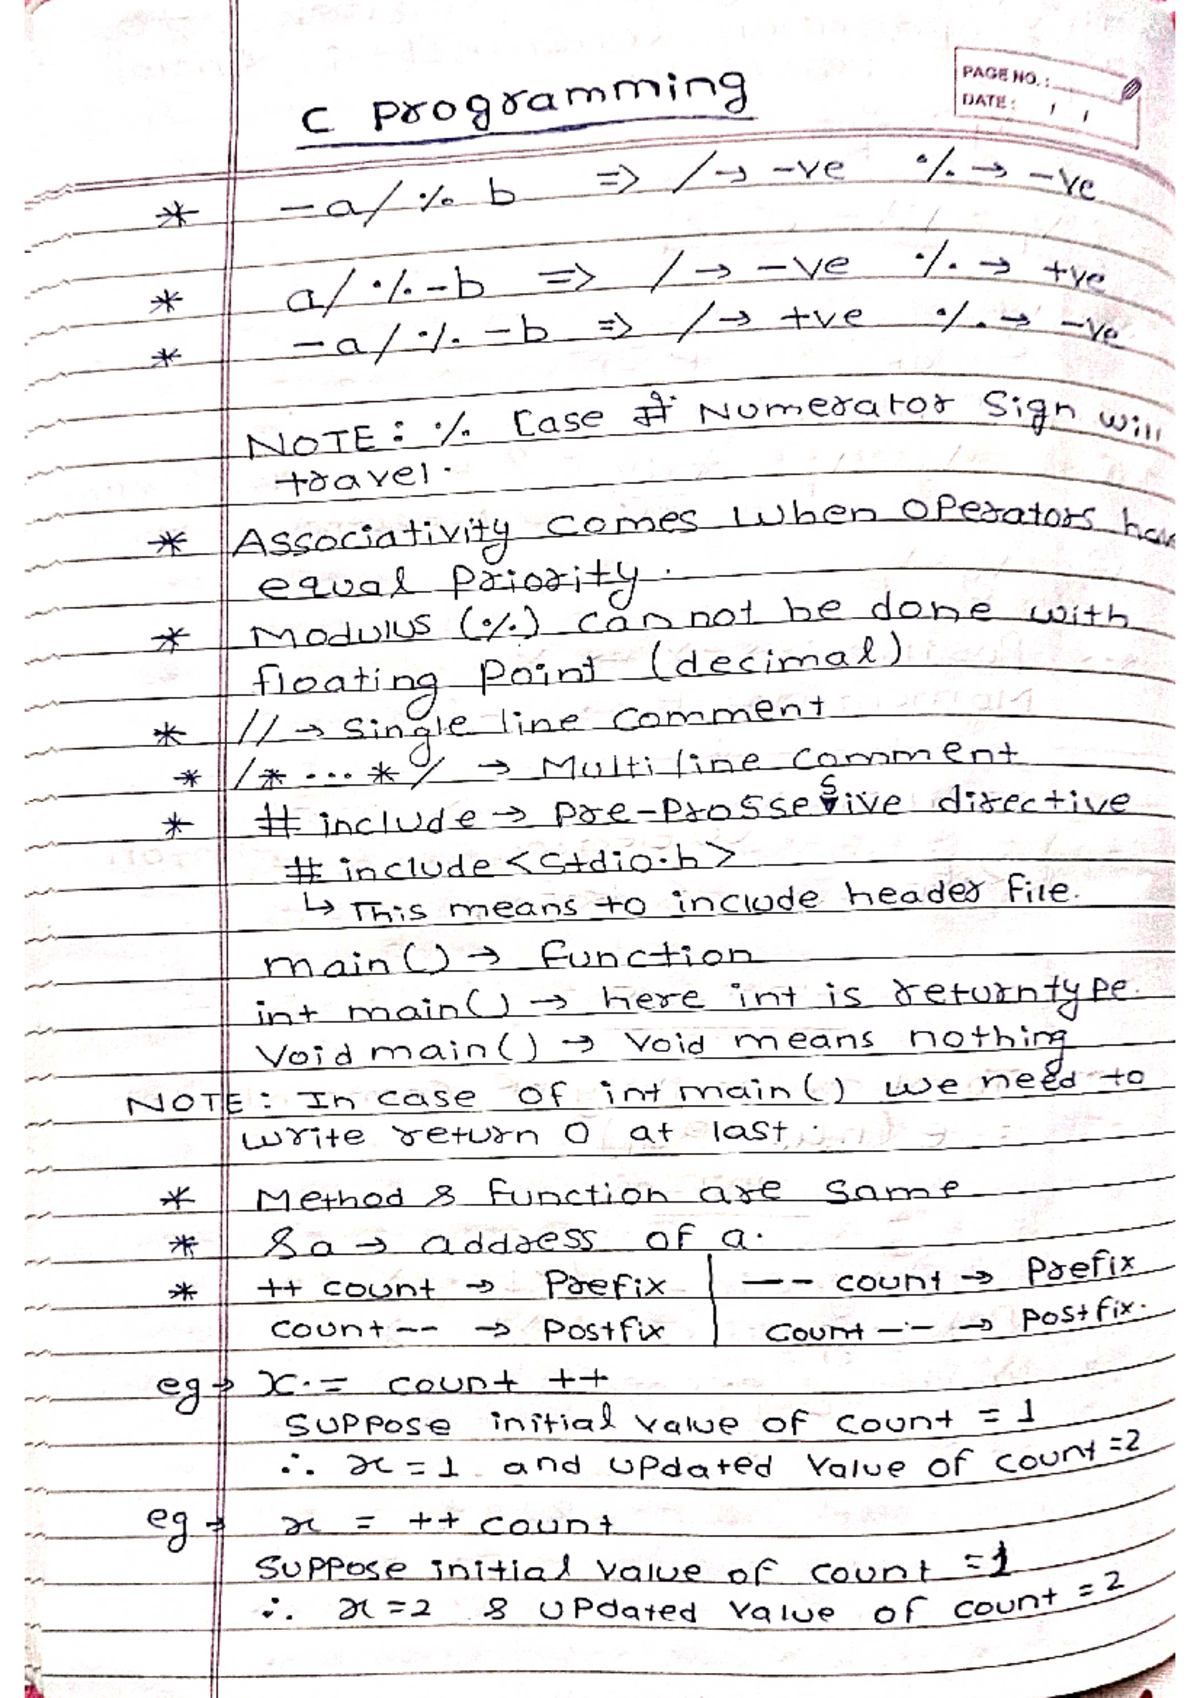 C Programming
PAGE NO.:
DATE: / /
* -a/% b => / → -ve % → -ve
* a/%-b => / → -ve % → +ve
* -a/% -b => / → +ve % → -ve
NOTE: % Case # Numerator Sign will
travel.
* Associativity comes when operators hav
equal Priority.
* Modulus (%) cannot be done with
floating Point (decimal)
* // → Single line comment
* /* ... */ → Multi line comment
* # include → Pre-Prossesive directive
# include <stdio.h>
↳ This means to include header file.
main() → function
int main() → here int is return type.
Void main() → Void means nothing
NOTE: In case of int main() we need to
write return 0 at last.
* Method & function are same
* &a → address of a.
* ++ count → Prefix | -- count → Prefix
count-- → Postfix | Count -- → Postfix.
eg → x = count ++
Suppose initial value of count = 1
∴ x = 1 and updated value of count =2
eg → x = ++ count
Suppose initial value of count =1
∴ x =2 & updated value of count = 2